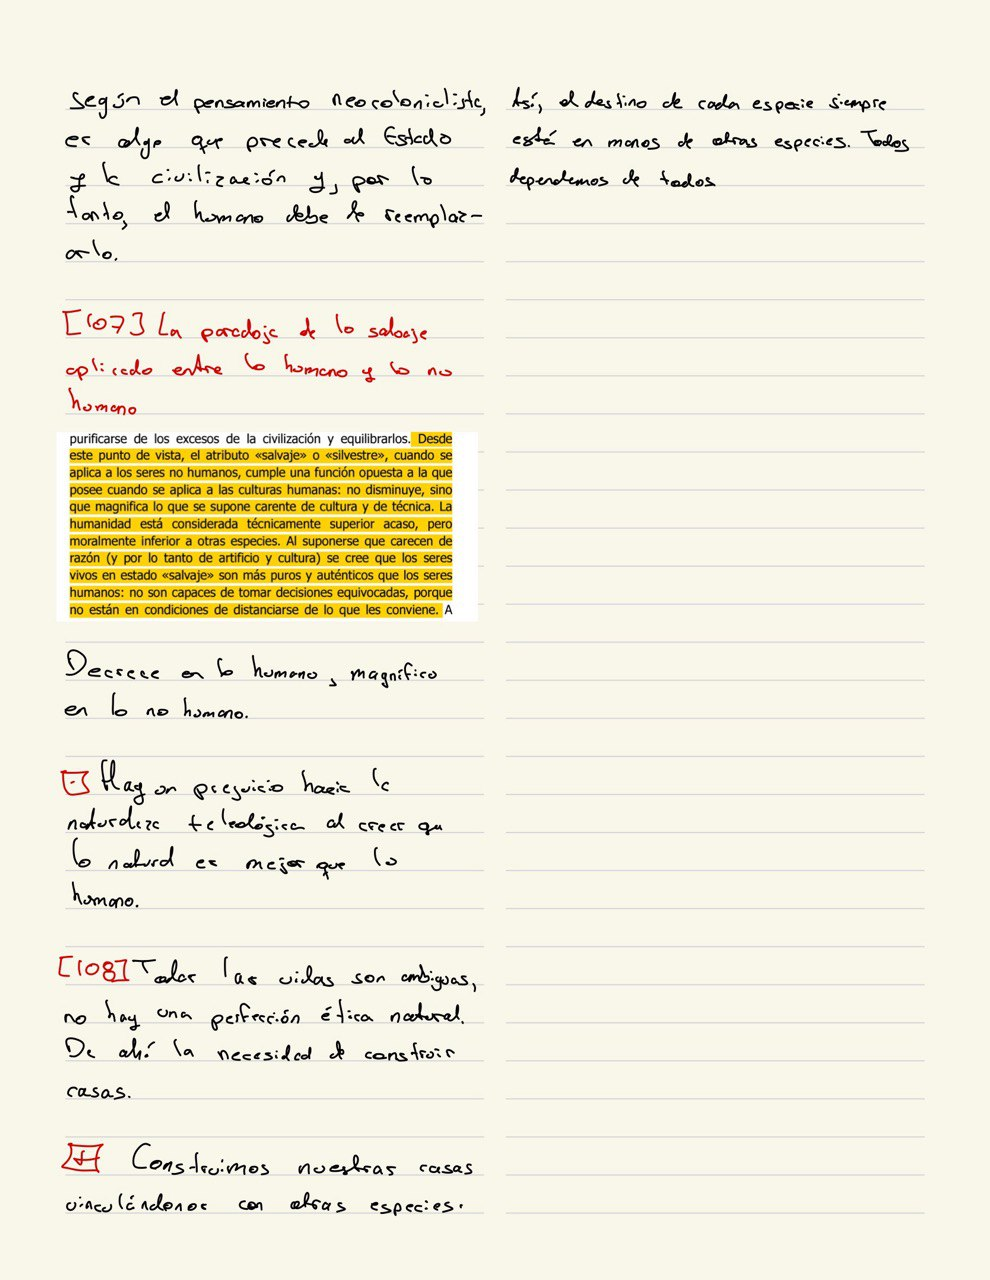 Según el pensamiento neocolonialista,
es algo que precede al Estado
y la civilización y, por lo
tanto, el humano debe de reemplaz-
arlo.
[107] La paradoja de lo salvaje
aplicado entre lo humano y lo no
humano
purificarse de los excesos de la civilización y equilibrarlos. Desde
este punto de vista, el atributo «salvaje» o «silvestre», cuando se
aplica a los seres no humanos, cumple una función opuesta a la que
posee cuando se aplica a las culturas humanas: no disminuye, sino
que magnifica lo que se supone carente de cultura y de técnica. La
humanidad está considerada técnicamente superior acaso, pero
moralmente inferior a otras especies. Al suponerse que carecen de
razón (y por lo tanto de artificio y cultura) se cree que los seres
vivos en estado «salvaje» son más puros y auténticos que los seres
humanos: no son capaces de tomar decisiones equivocadas, porque
no están en condiciones de distanciarse de lo que les conviene. A
Decrece en lo humano, magnífico
en lo no humano.
[-] Hay un prejuicio hacia la
naturaleza teleológica al creer que
lo natural es mejor que lo
humano.
[108] Todas las vidas son ambiguas,
no hay una perfección ética natural.
De ahí la necesidad de construir
casas.
[+] Construimos nuestras casas
vinculándonos con otras especies.
Así, el destino de cada especie siempre
está en manos de otras especies. Todos
dependemos de todos